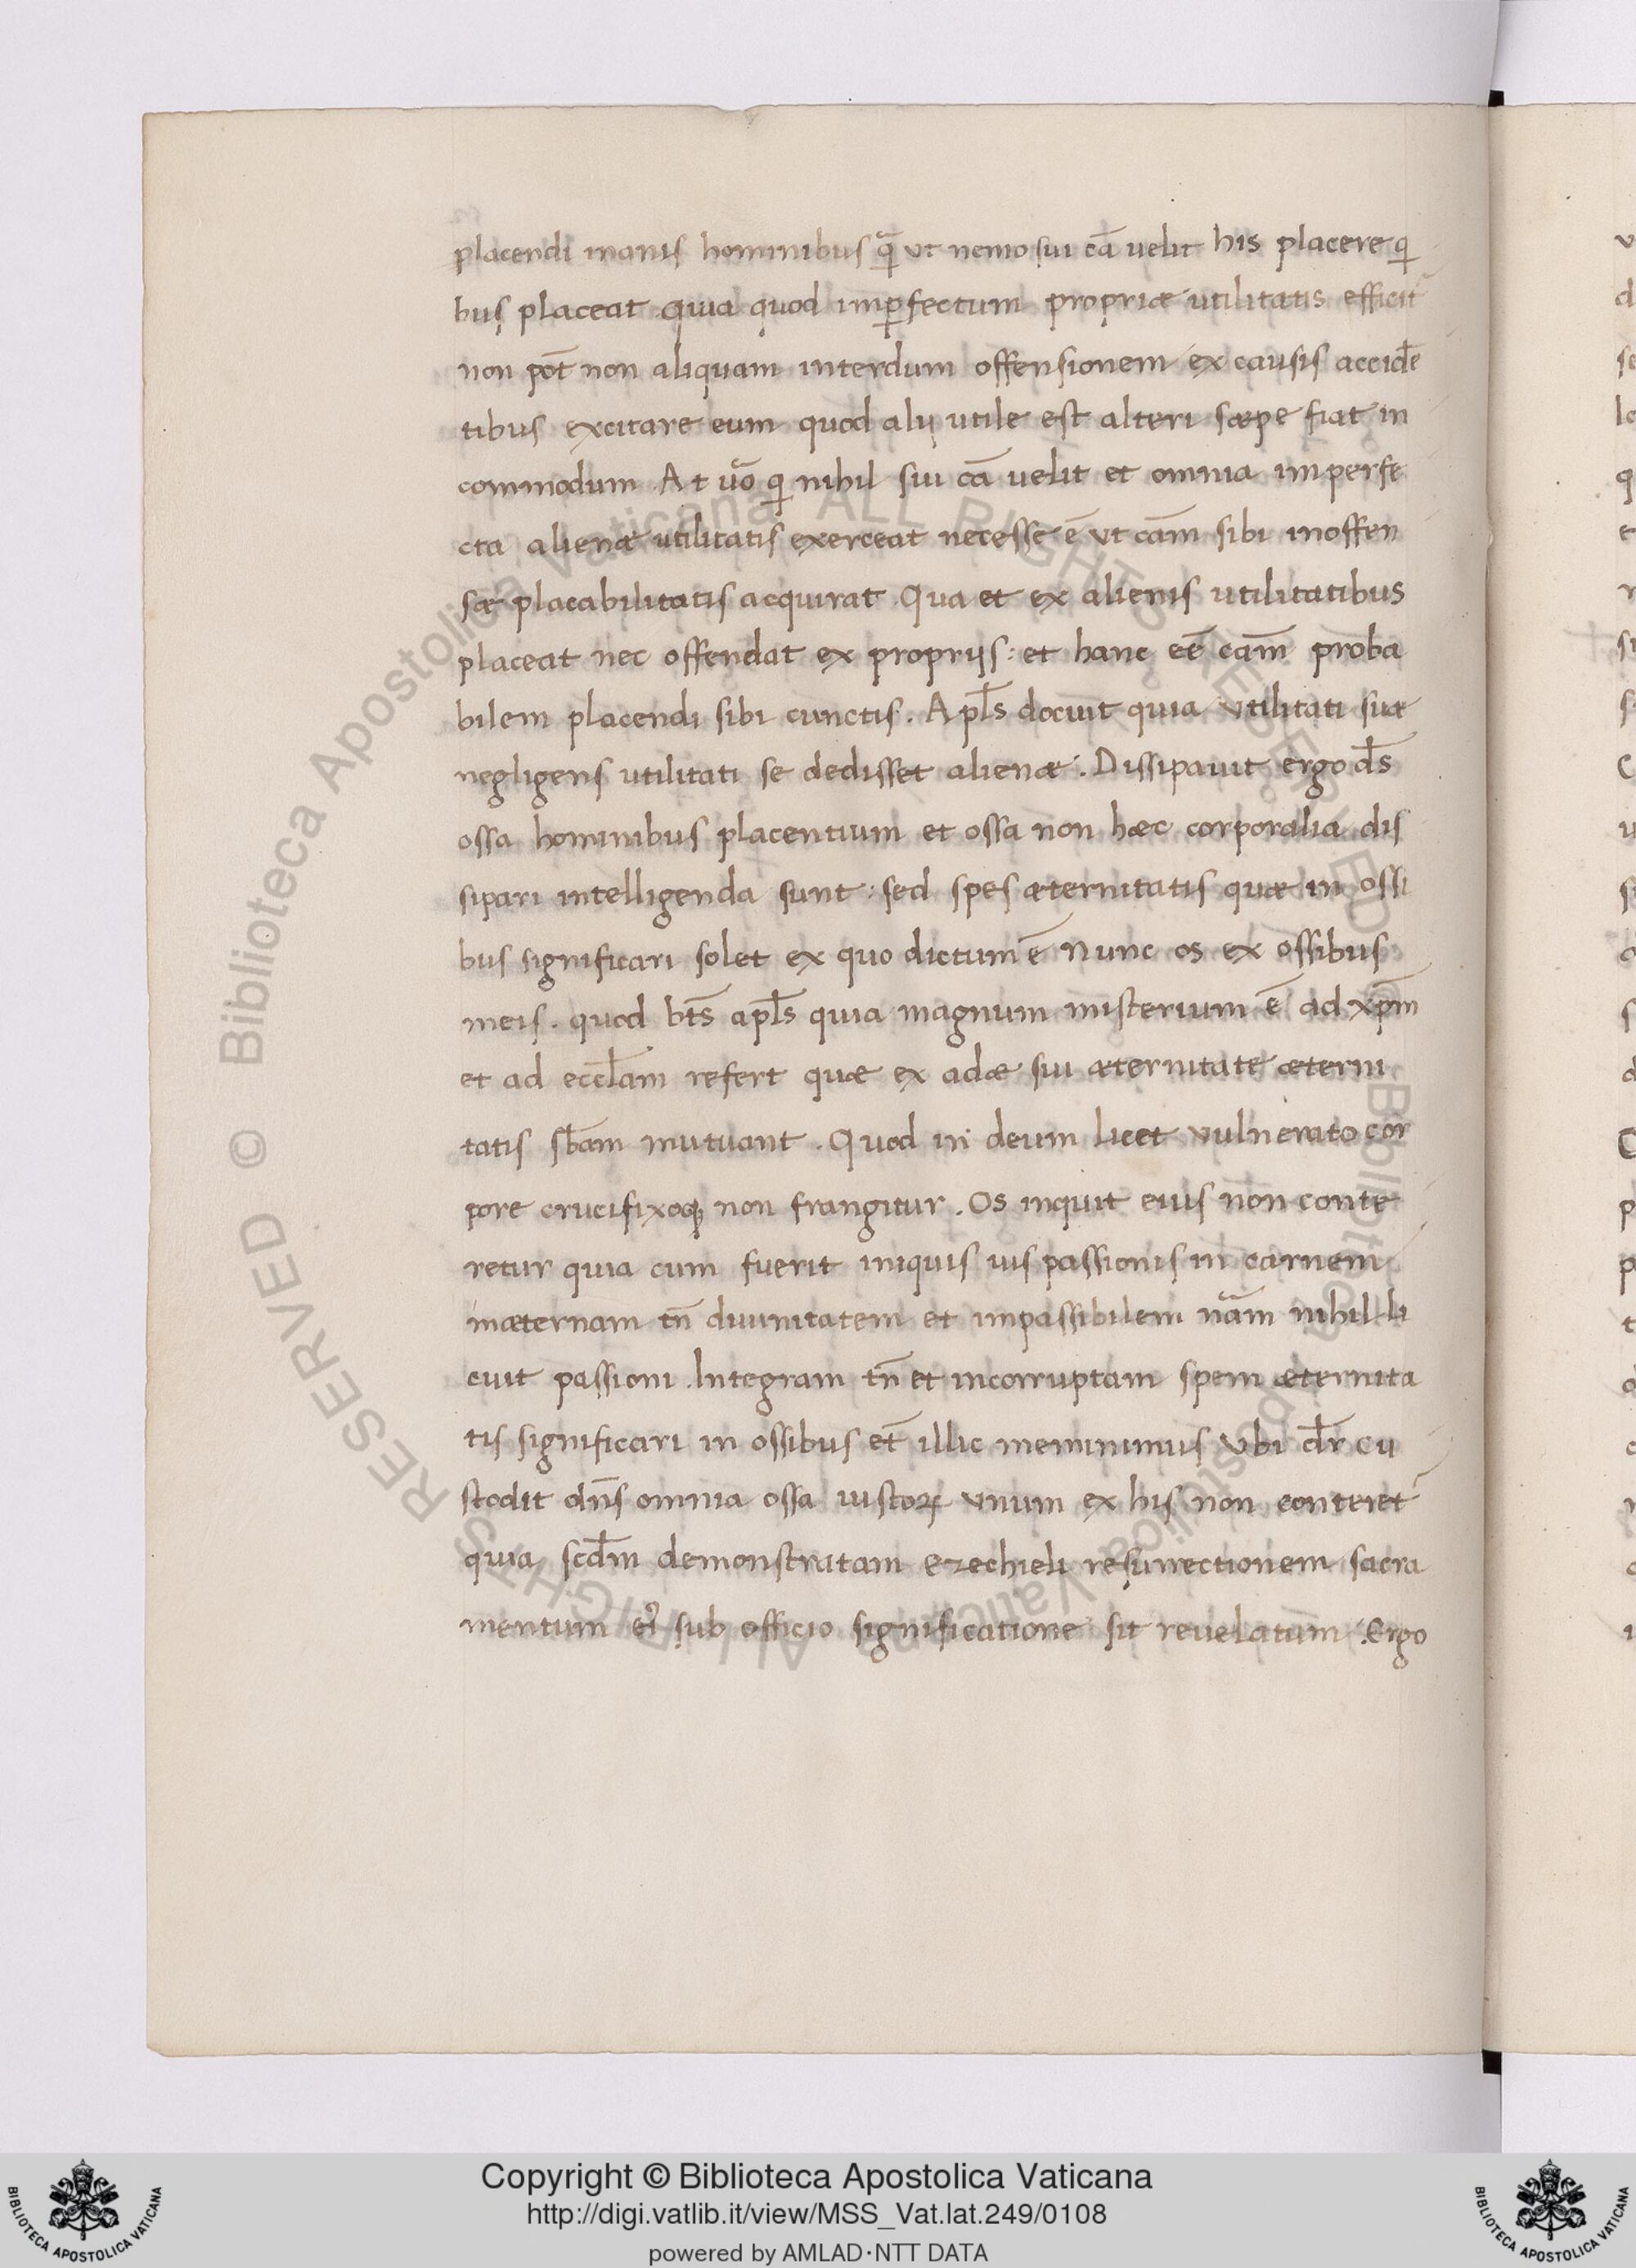 placendi inanis hominibus qͣ ut nemo sui cā uelit his placere qͥ
bus placeat quia quod imꝑfectum propriæ utilitatis efficit
non pōt non aliquam interdum offensionem ex causis accidē
tibus excitare eum quod alij utile est alteri sæpe fiat in
commodum At uō qͥ nihil sui cā uelit et omnia imperfe
cta alienæ utilitatis exerceat necesse ē vt cām sibi inoffen
sæ placabilitatis acquirat. Qua et ex alienis utilitatibus
placeat nec offendat ex proprijs: et hanc eē cām proba
bilem placendi sibi cunctis. Apl̄s docuit quia vtilitati suæ
negligens utilitati se dedisset alienæ. Dissipauit ergo d̄s
ossa hominibus placentium et ossa non hæc corporalia dis
sipari intelligenda sunt: sed spes æternitatis quæ in ossi
bus significari solet ex quo dictum ē Nunc os ex ossibus
meis. quod bt̄s apl̄s quia magnum misterium ē ad xp̄m
et ad eccl̄am refert quæ ex adæ sui æternitate æterni
tatis sb̄am mutuant. Quod in deum licet vulnerato cor
pore crucifixoqꝫ non frangitur. Os inquit eius non conte
retur quia cum fuerit iniquis ius passionis in carnem
inæternam tn̄ diuinitatem et impassibilem nām nihil li
cuit passioni. Integram tn̄ et incorruptam spem æternita
tis significari in ossibus et̄ illic meminimus vbi dr̄ cu
stodit dn̄s omnia ossa iustoꝝ vnum ex his non conteret̄
quia scd̄m demonstratam ezechieli resurrectionem sacra
mentum sub officio significatione sit reuelatum. Ergo
Biblioteca Apostolica Vaticana ALL RIGHTS RESERVED ©
Biblioteca Apostolica Vaticana ALL RIGHTS RESERVED ©
Copyright © Biblioteca Apostolica Vaticana
http://digi.vatlib.it/view/MSS_Vat.lat.249/0108
powered by AMLAD·NTT DATA
BIBLIOTECA APOSTOLICA VATICANA
BIBLIOTECA APOSTOLICA VATICANA